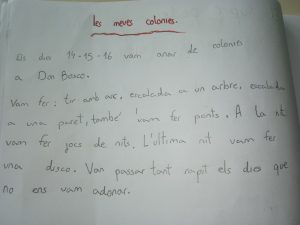 les meves colonies.
Els dies 14-15-16 vam anar de colonies
a Don Bosco.
Vam fer: tir amb arc, escalada a un arbre, escalada
a una paret, també vam fer ponts. A la nit
vam fer jocs de nits. L'última nit vam fer
una disco. Van passar tant rapit els dies que
no ens vam adonar.